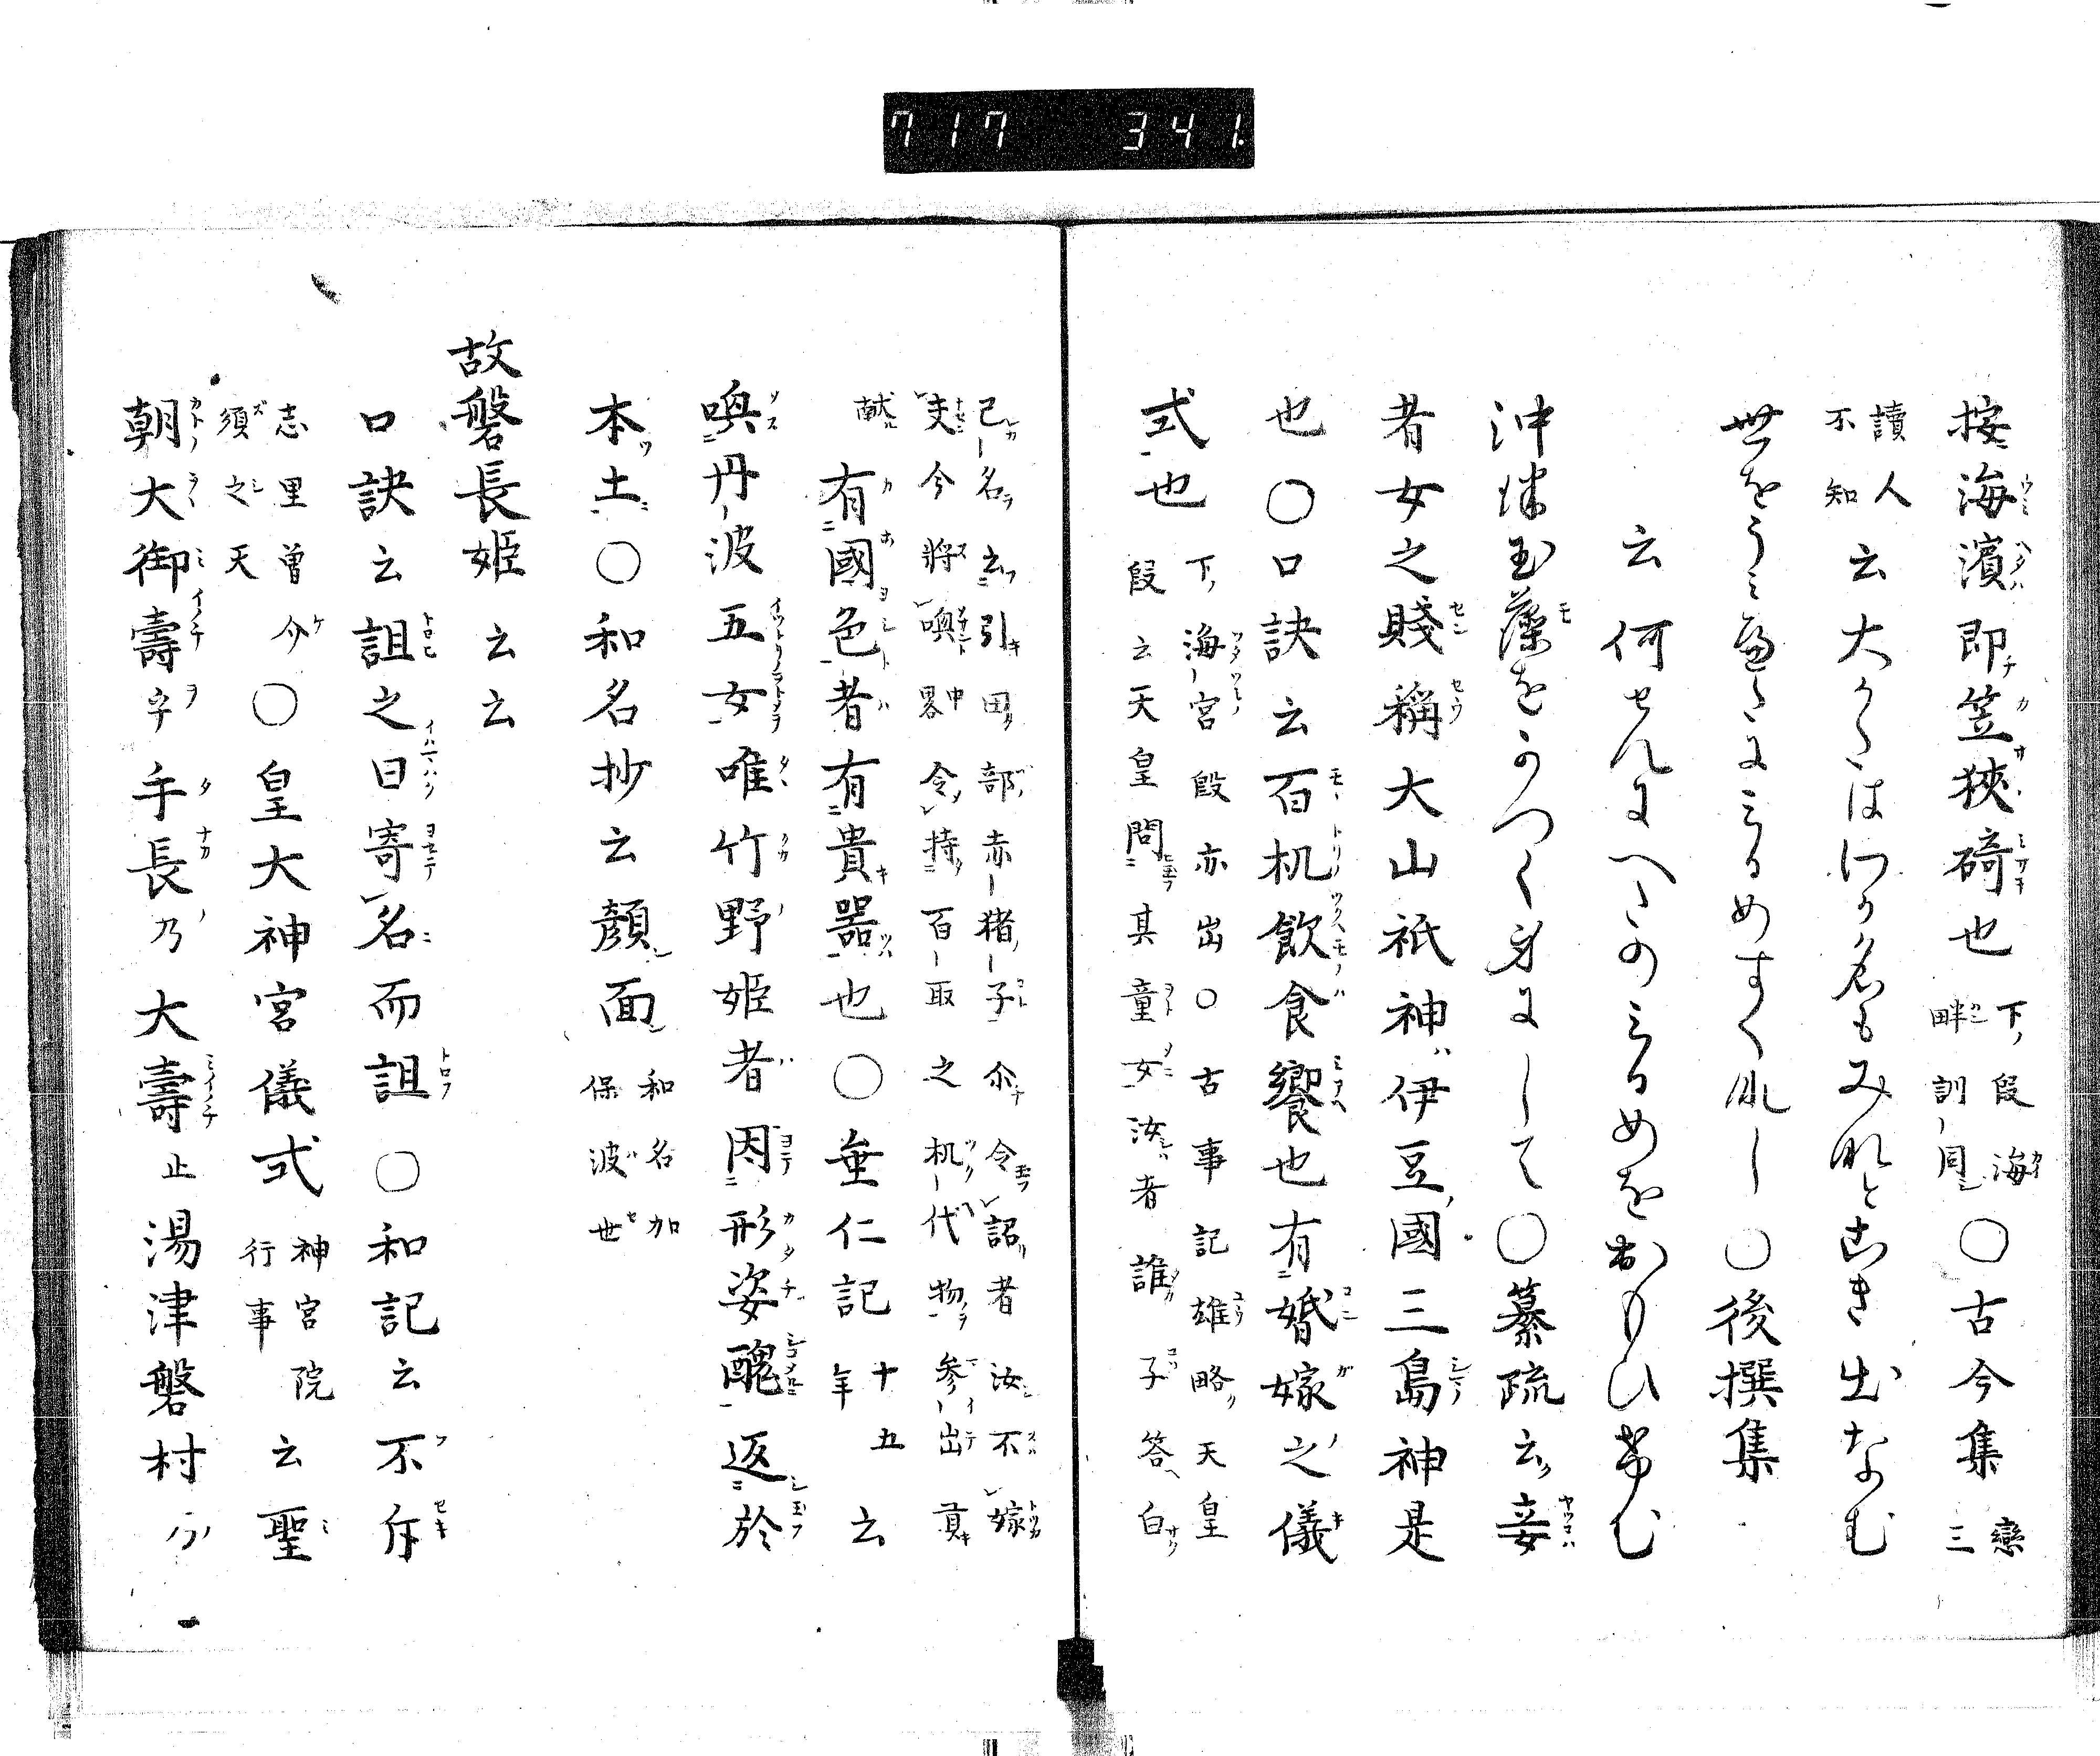 717 341
按海濱即笠狹碕也 下段海畔訓同 ○古今集 戀三
讀人不知 云大かたはわか名もみなとこき出なむ
世をうみへたにみるめすくなし○後撰集
云何せんにへたのみるめをおもひけむ
沖津玉藻をかつく身にして○纂疏云妾
者女之賤稱大山祇神伊豆國三島神是
也○口訣云百机飲食饗也有婚嫁之儀
式也 下海宮段亦出○古事記雄略天皇段云天皇問其童女汝者誰子答白
己名云引田部赤猪子尒令詔者汝不嫁夫今將喚 中畧 令持百取之机代物參出貢
獻 有國色者有貴器也○垂仁記 十五年 云
喚丹波五女唯竹野姬者因形姿醜返於
本土○和名抄云顏面 和名加保波世
故磐長姬云云
口訣云詛之曰寄名而詛○和記云不斥
志里曾介須之天 ○皇大神宮儀式 神宮院行事 云聖
朝大御壽乎手長乃大壽止湯津磐村